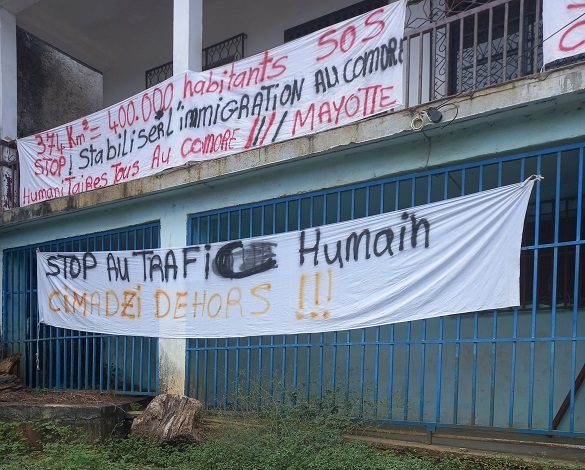 374 Km² = 400.000 habitants SOS
STOP ! Stabiliser l'immigration AU COMORE
Humanitaires Tous Au COMORE //// MAYOTTE
STOP AU TRAFIC Humain
CIMADZI DEHORS !!!